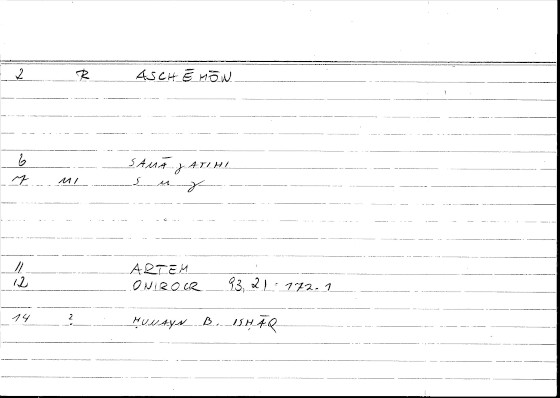 2 R ASCHĒMŌN
6 SAMĀ ɣ ATIHI
7 MI S M ɣ
11 ARTEM
12 ONIROCR 93,21 · 172.1
14 ? ḤUNAYN B. ISḤĀQ